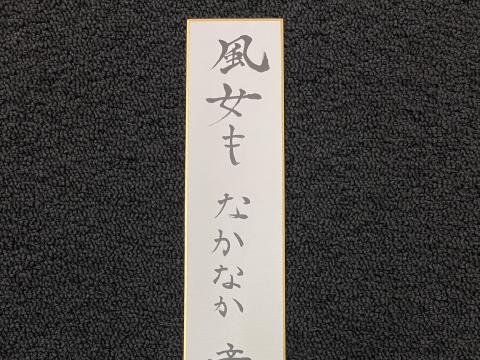 風女も なかなか